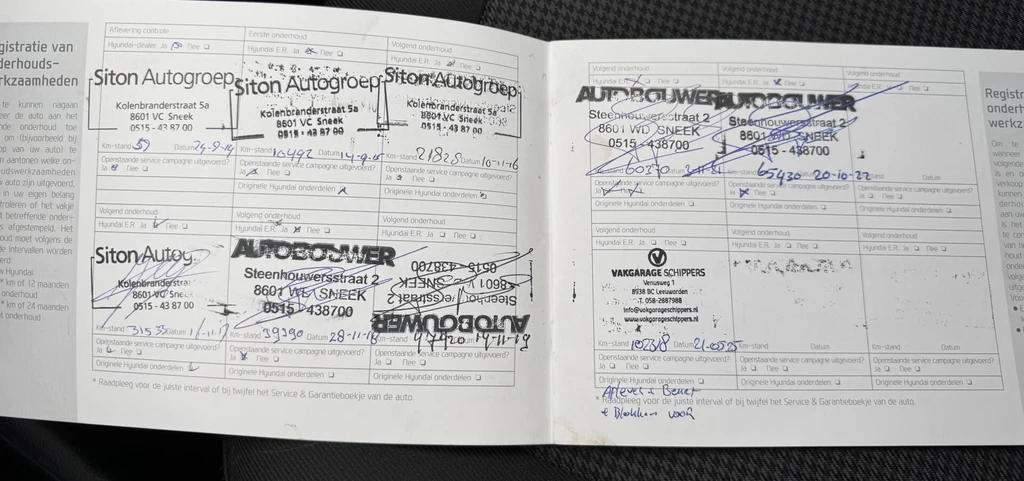 gistratie van
derhouds-
rkzaamheden
te kunnen nagaan
eer de auto aan het
nde onderhoud toe
om (bijvoorbeeld bij
op van uw auto) te
n aantonen welke on-
udswerkzaamheden
auto zijn uitgevoerd,
in uw eigen belang
troleren of het vakje
t betreffende onder-
s afgestempeld. Het
oud moet volgens de
le intervallen worden
erd.
w Hyundai
* km of 12 maanden
onderhoud
* km of 24 maanden
ot onderhoud
Aflevering controle
Hyundai-dealer Ja Nee
Siton Autogroep
Kolenbranderstraat 5a
8601 VC Sneek
0515 - 43 87 00
Km-stand 59 Datum 24-9-14
Openstaande service campagne uitgevoerd?
Ja Nee
Eerste onderhoud
Hyundai E.R. Ja Nee
Siton Autogroep
Kolenbranderstraat 5a
8601 VC Sneek
0515 - 43 87 00
Km-stand 10492 Datum
Openstaande service campagne uitgevoerd?
Ja Nee
Originele Hyundai onderdelen
Volgend onderhoud
Hyundai E.R. Ja Nee
Siton Autogroep
Kolenbranderstraat 5a
8601 VC Sneek
Km-stand 21828 Datum 10-11-16
Openstaande service campagne uitgevoerd?
Ja Nee
Originele Hyundai onderdelen
Volgend onderhoud
Hyundai E.R. Ja Nee
Siton Autog
Kolenbranderstraat
8601 VC Sneek
0515 - 43 87 00
Km-stand 31533 Datum
Openstaande service campagne uitgevoerd?
Ja Nee
Originele Hyundai onderdelen
Volgend onderhoud
Hyundai E.R. Ja Nee
AUTOBOUWER
Steenhouwersstraat 2
8601 WD SNEEK
0515 438700
Km-stand 39390 Datum 28-11-18
Openstaande service campagne uitgevoerd?
Ja Nee
Originele Hyundai onderdelen
Volgend onderhoud
Hyundai E.R. Ja Nee
AUTOBOUWER
SNEEK
0515 - 438700
Km-stand 47920 14-11-19
Openstaande service campagne uitgevoerd?
Ja Nee
Originele Hyundai onderdelen
* Raadpleeg voor de juiste interval of bij twijfel het Service & Garantieboekje van de auto.
Volgend onderhoud
Hyundai E.R. Nee
AUTOBOUWER
Steenhouwersstraat 2
8601 WD SNEEK
0515 - 438700
60370
Openstaande service campagne uitgevoerd?
Originele Hyundai onderdelen
Volgend onderhoud
Hyundai E.R. Ja Nee
AUTOBOUWER
Steenhouwersstraat 2
8601 WD SNEEK
0515 - 438700
65430 20-10-22
Openstaande service campagne uitgevoerd?
Ja Nee
Originele Hyundai onderdelen
Volgend onderhoud
Hyundai E.R. Ja Nee
Datum
Openstaande service campagne uitgevoerd?
Ja Nee
Originele Hyundai onderdelen
Volgend onderhoud
Hyundai E.R. Ja Nee
VAKGARAGE SCHIPPERS
Venusweg 1
8938 BC Leeuwarden
T. 058-2887988
info@vakgarageschippers.nl
www.vakgarageschippers.nl
Km-stand 102318 Datum 21-0525
Openstaande service campagne uitgevoerd?
Ja Nee
Originele Hyundai onderdelen
Volgend onderhoud
Hyundai E.R. Ja Nee
Km-stand Datum
Openstaande service campagne uitgevoerd?
Ja Nee
Originele Hyundai onderdelen
Volgend onderhoud
Hyundai E.R. Ja Nee
Km-stand Datum
Openstaande service campagne uitgevoerd?
Ja Nee
Originele Hyundai onderdelen
* Raadpleeg voor de juiste interval of bij twijfel het Service & Garantieboekje van de auto.
voor
Registr
onderh
werkz